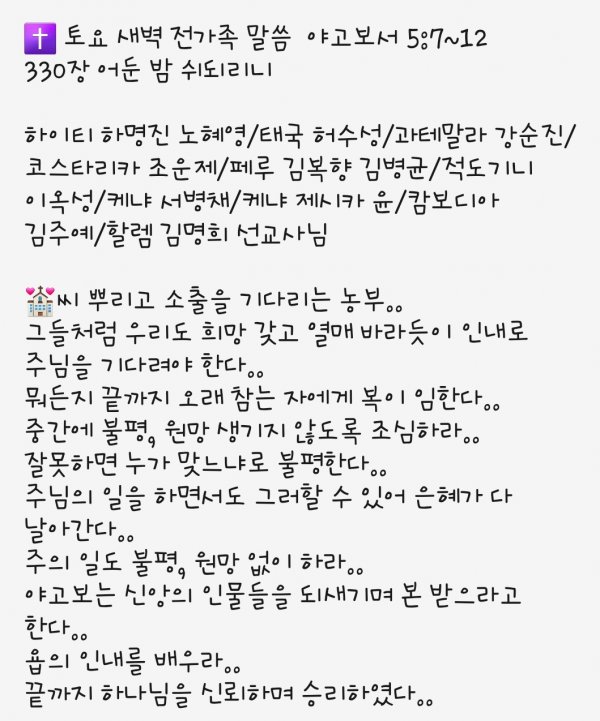 ✝️ 토요 새벽 전가족 말씀 야고보서 5:7~12
330장 어둔 밤 쉬되리니
하이티 하명진 노혜영/태국 허수성/과테말라 강순진/
코스타리카 조운제/페루 김복향 김병균/적도기니
이옥성/케냐 서병채/케냐 제시카 윤/캄보디아
김주예/할렘 김명희 선교사님
💒씨 뿌리고 소출을 기다리는 농부..
그들처럼 우리도 희망 갖고 열매 바라듯이 인내로
주님을 기다려야 한다..
뭐든지 끝까지 오래 참는 자에게 복이 임한다..
중간에 불평, 원망 생기지 않도록 조심하라..
잘못하면 누가 맞느냐로 불평한다..
주님의 일을 하면서도 그러할 수 있어 은혜가 다
날아간다..
주의 일도 불평, 원망 없이 하라..
야고보는 신앙의 인물들을 되새기며 본 받으라고
한다..
욥의 인내를 배우라..
끝까지 하나님을 신뢰하며 승리하였다..